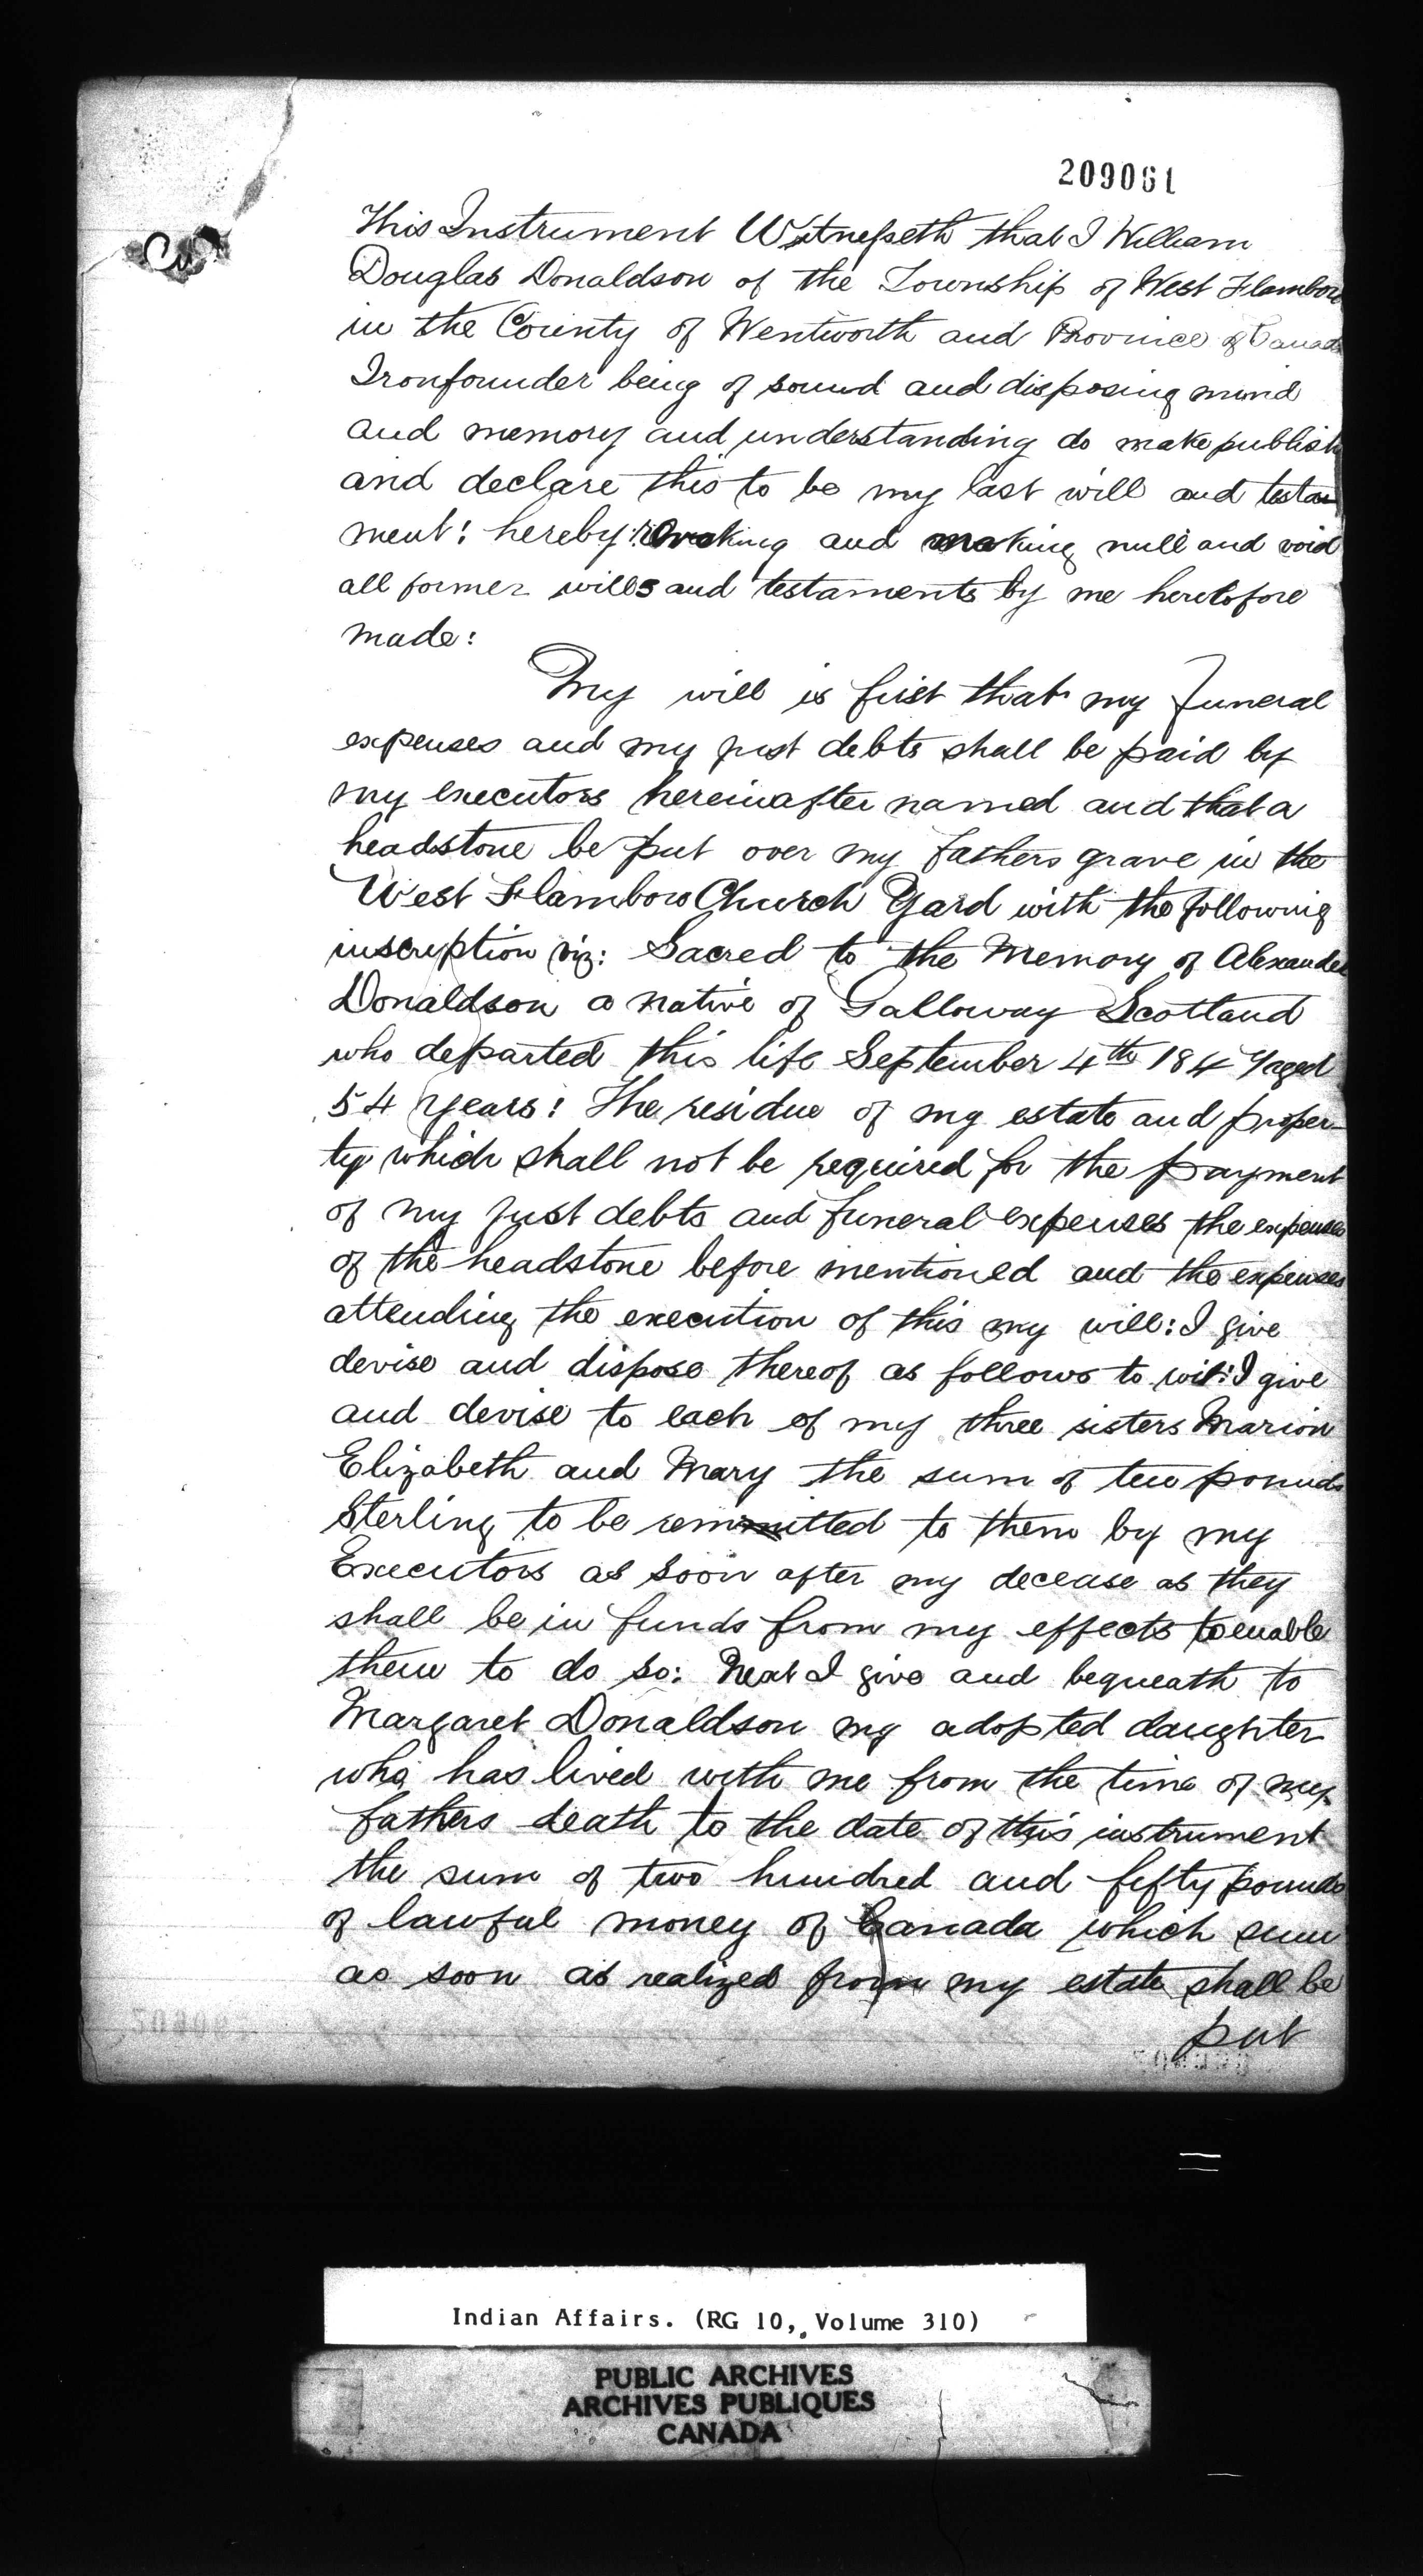 209061
This Instrument Witnesseth that I William
Douglas Donaldson of the Township of West Flamboro
in the County of Wentworth and Province of Canada
Ironfounder being of sound and disposing mind
and memory and understanding do make publish
and declare this to be my last will and testa
ment: hereby revoking and making null and void
all former wills and testaments by me heretofore
made:
My will is first that my funeral
expenses and my just debts shall be paid by
my executors hereinafter named and that a
headstone be put over my fathers grave in the
West Flamboro Church Yard with the following
inscription viz: Sacred to the Memory of Alexander
Donaldson a native of Galloway Scotland
who departed this life September 4th 1847 aged
54 years: The residue of my estate and proper-
ty which shall not be required for the payment
of my just debts and funeral expenses the expenses
of the headstone before mentioned and the expenses
attending the execution of this my will: I give
devise and dispose thereof as follows to wit: I give
and devise to each of my three sisters Marion
Elizabeth and Mary the sum of ten pounds
Sterling to be remmitted to them by my
Executors as soon after my decease as they
shall be in funds from my effects to enable
them to do so: Next I give and bequeath to
Margaret Donaldson my adopted daughter
who has lived with me from the time of my
fathers death to the date of this instrument
the sum of two hundred and fifty pounds
of lawful money of Canada which sum
as soon as realized from my estate shall be
put
Indian Affairs. (RG 10, Volume 310)
PUBLIC ARCHIVES
ARCHIVES PUBLIQUES
CANADA